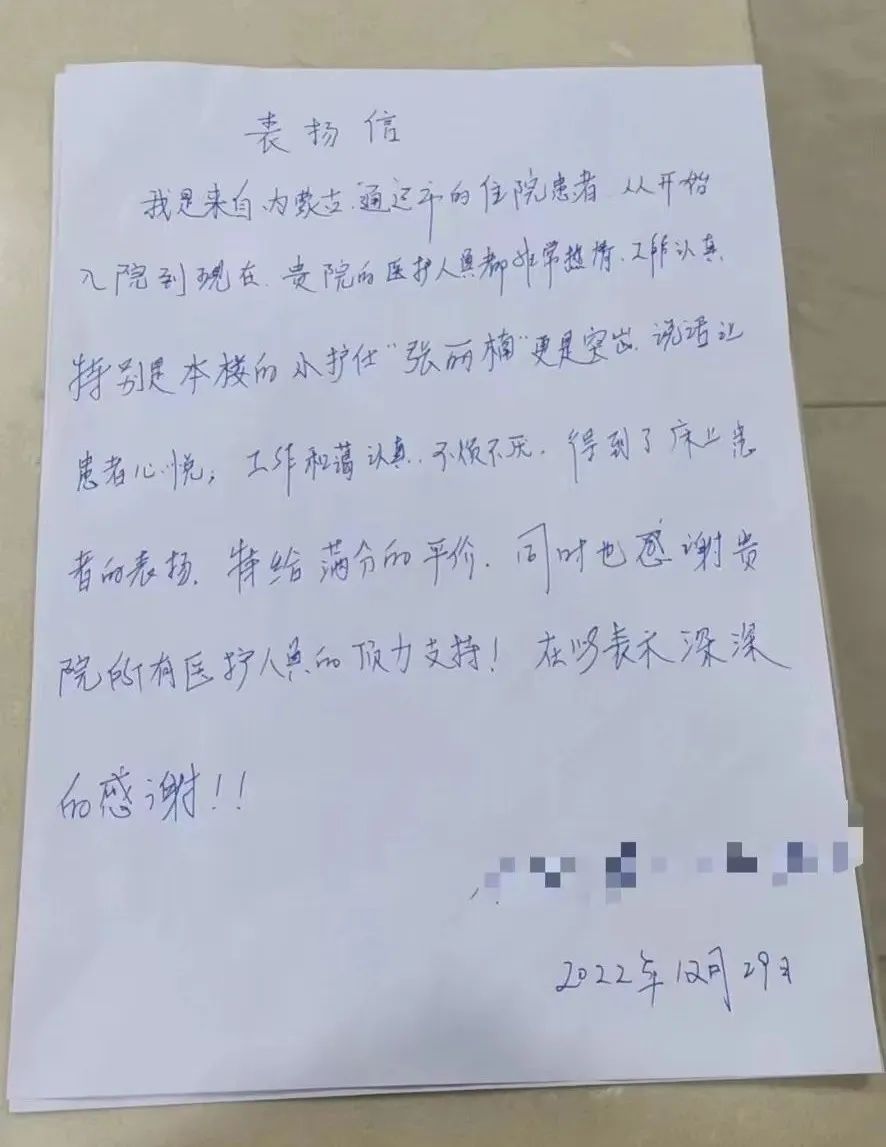 表扬信
我是来自内蒙古.通辽市的住院患者.从开始
入院到现在.贵院的医护人员都非常热情.工作认真
特别是本楼的小护仕"张丽楠"更是突出.说话让
患者心悦；工作和蔼认真.不烦不厌.得到了床上患
者的表扬.特给满分的平价.同时也感谢贵
院所有医护人员的顶力支持！在此表示深深
的感谢！！
2022年12月29日